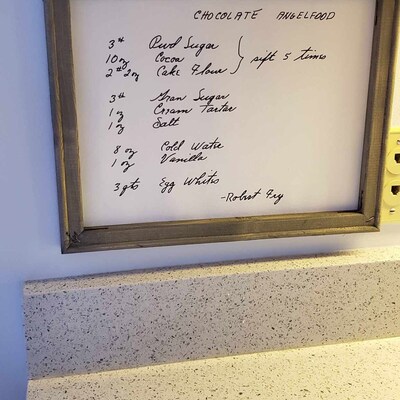 CHOCOLATE ANGELFOOD
3# Pwd Sugar
10 oz Cocoa } sift 5 times
2# 2 oz Cake Flour
3# Gran Sugar
1 oz Cream Tarter
1 oz Salt
8 oz Cold Water
1 oz Vanilla
3 qts Egg Whites
-Robert Fry